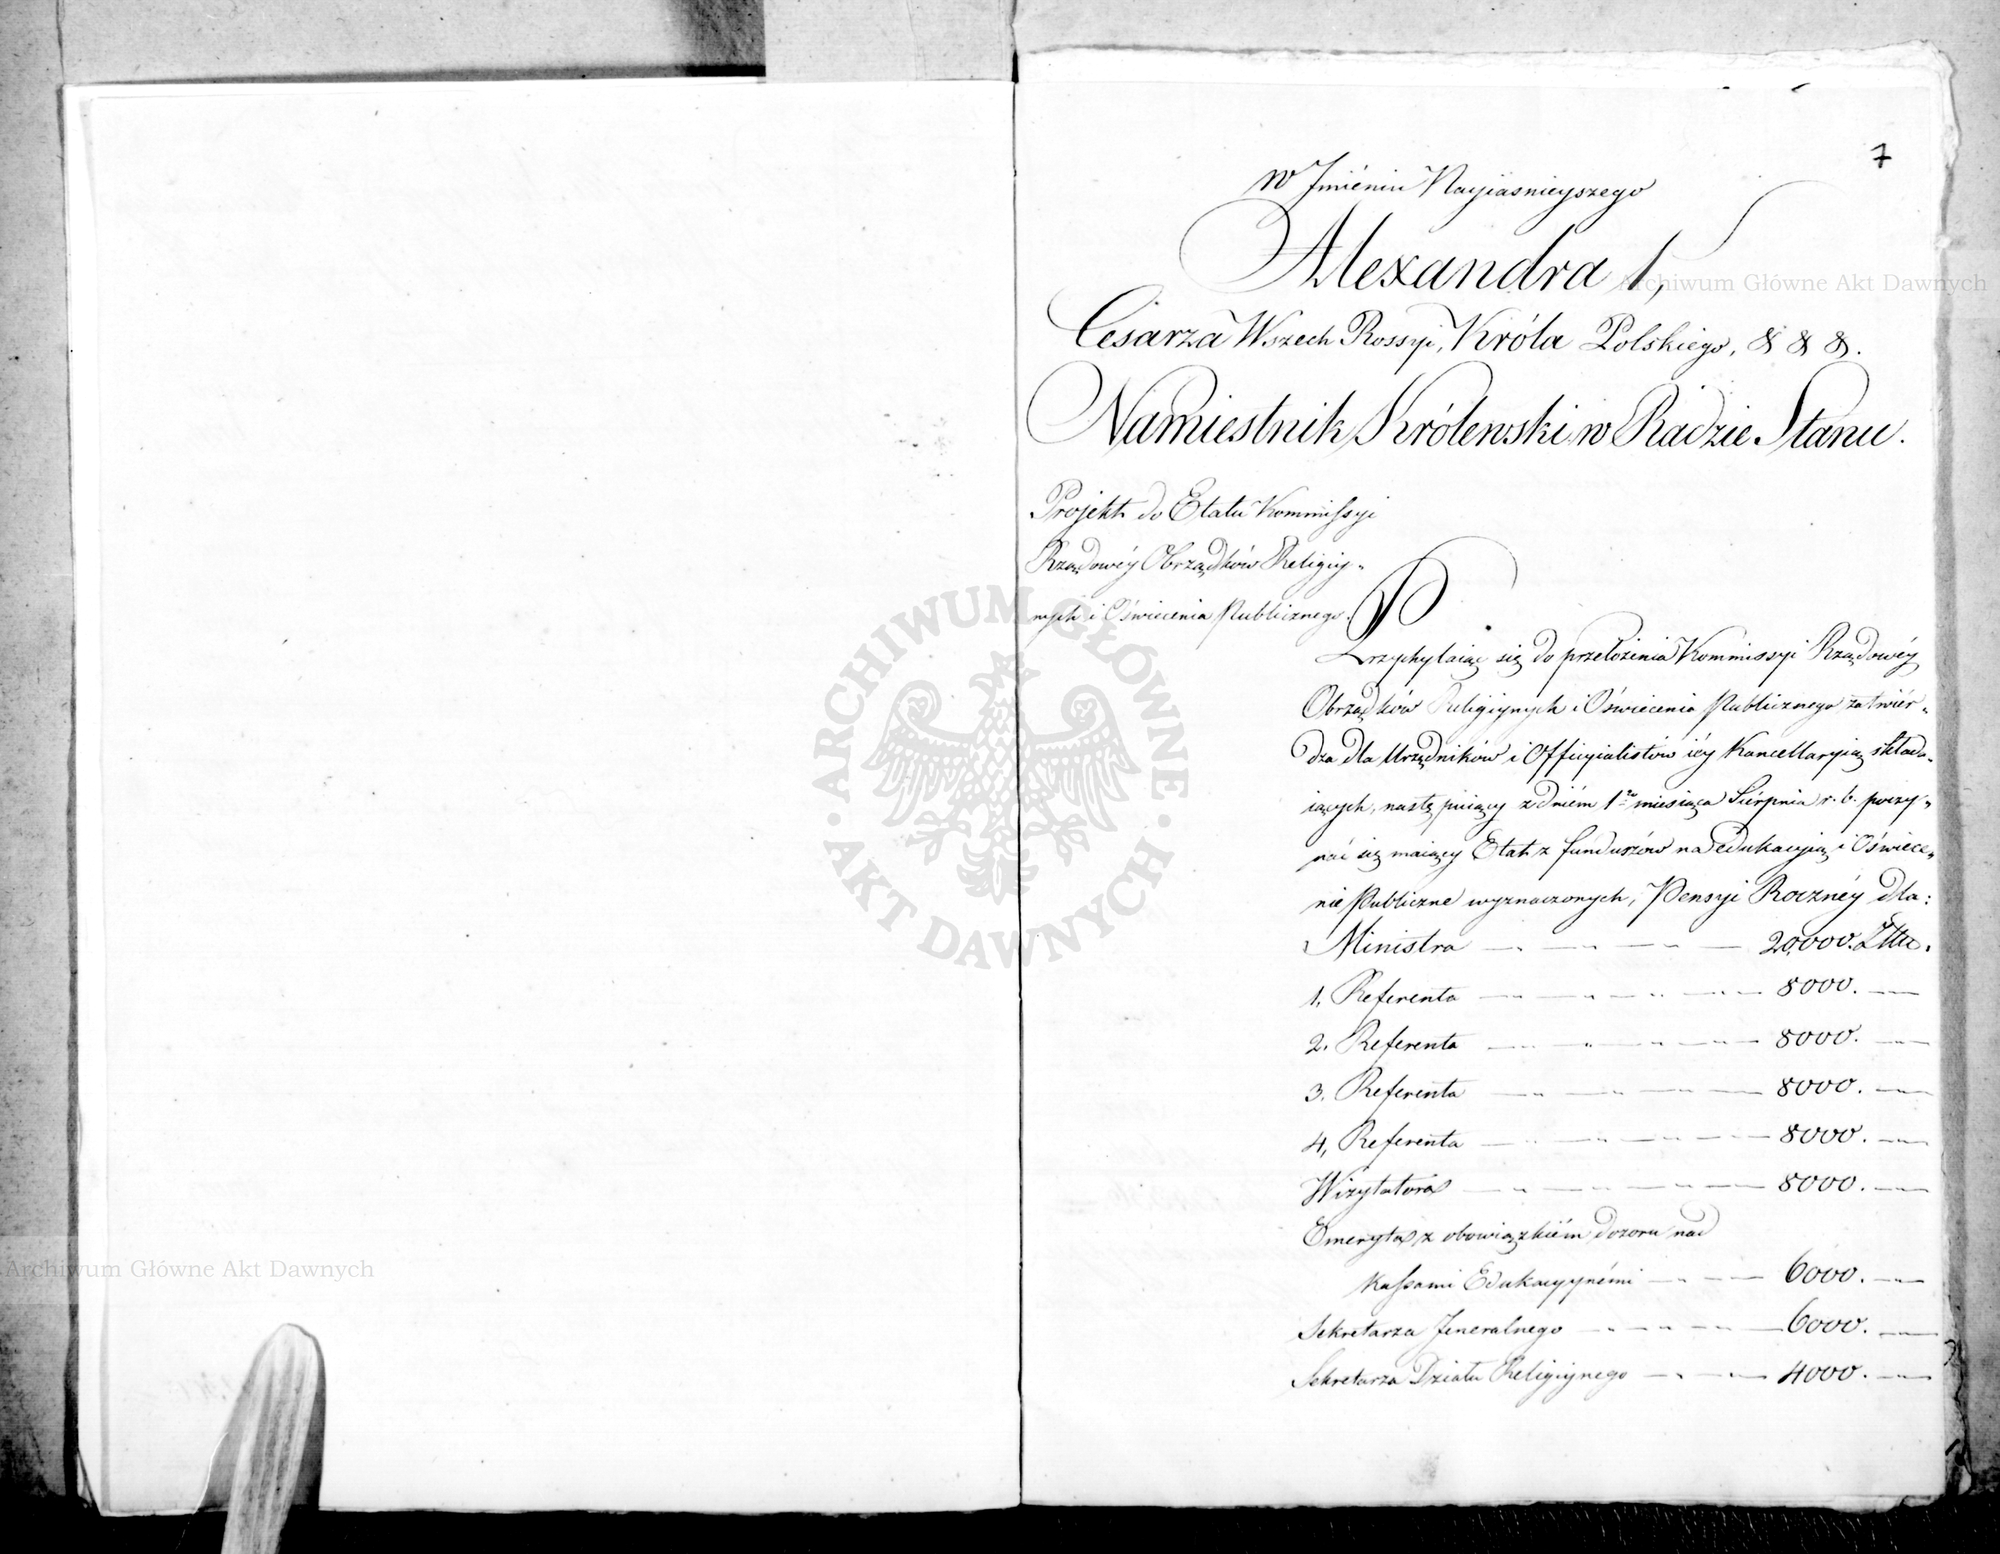 7
W Jmiéniu Nayiasnieyszego
Alexandra 1,
Cesarza Wszech Rossyi, Króla Polskiego, & & &.
Namiestnik Królewski w Radzie Stanu.
Projekt do Etatu Kommissyi
Rządowéy Obrządków Religiy„
nych i Oświecenia Publicznego.
Przychylaiąc się do przełożenia Kommissyi Rządowéy
Obrządków Religiynych i Oświecenia Publicznego zatwiér„
dza dla Urzędników i Officyialistów iéy Kancellaryią składa„
iących, następuiący z dniém 1go miesiąca Sierpnia r. b. poczy„
nać się maiący Etat z funduszów na edukacyią i Oświece„
nie Publiczne wyznaczonych, Pensyi Roczney dla:
Ministra 20,000. Złtu.
1, Referenta 8000.
2. Referenta 8000.
3. Referenta 8000.
4, Referenta 8000.
Wizytatora 8000.
Emeryta z obowiązkiém dozoru nad
Kassami Edukacyynémi 6000.
Sekretarza Jeneralnego 6000.
Sekretarza Działu Religiynego 4000.
ARCHIWUM GŁÓWNE
AKT DAWNYCH
Archiwum Główne Akt Dawnych
Archiwum Główne Akt Dawnych